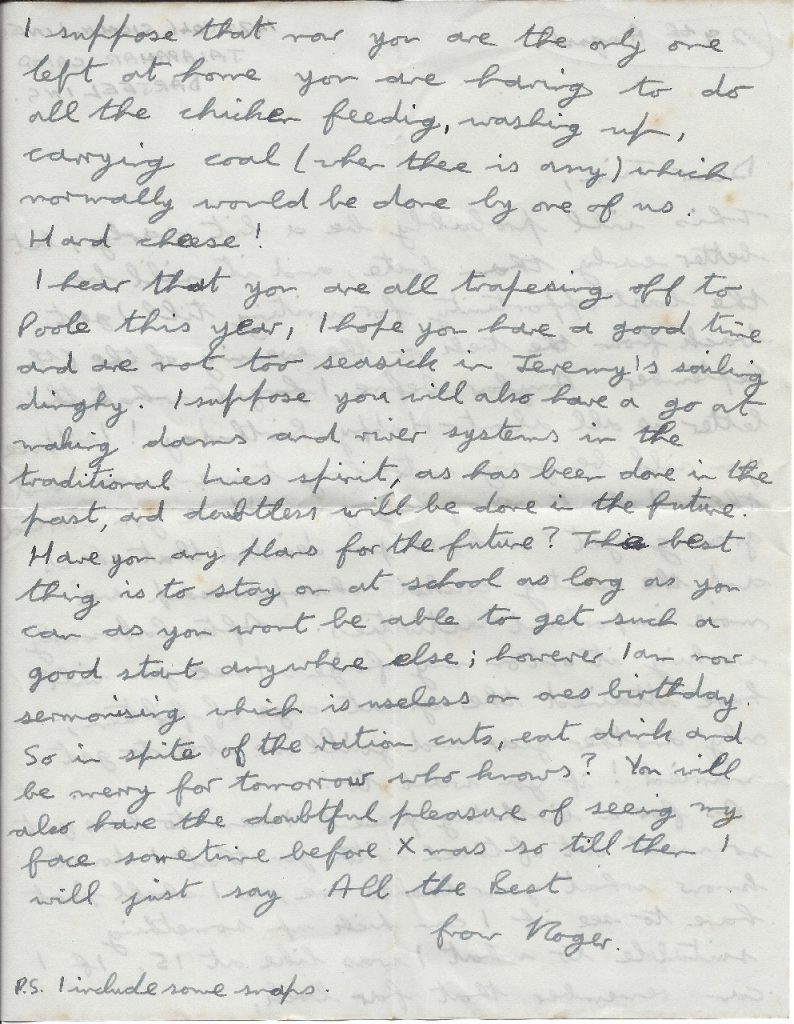 I suppose that now you are the only one
left at home you are having to do
all the chicken feeding, washing up,
carrying coal (when there is any) which
normally would be done by one of us.
Hard cheese!
I hear that you are all trapesing off to
Poole this year, I hope you have a good time
and are not too seasick in Jeremy's sailing
dinghy. I suppose you will also have a go at
making dams and river systems in the
traditional spirit, as has been done in the
past, and doubtless will be done in the future.
Have you any plans for the future? The best
thing is to stay on at school as long as you
can as you wont be able to get such a
good start anywhere else; however I am now
sermonising which is useless on ones birthday.
So in spite of the ration cuts, eat drink and
be merry for tomorrow who knows? You will
also have the doubtful pleasure of seeing my
face sometime before Xmas so till then I
will just say All the Best
from Roger.
P.S. I include some snaps.